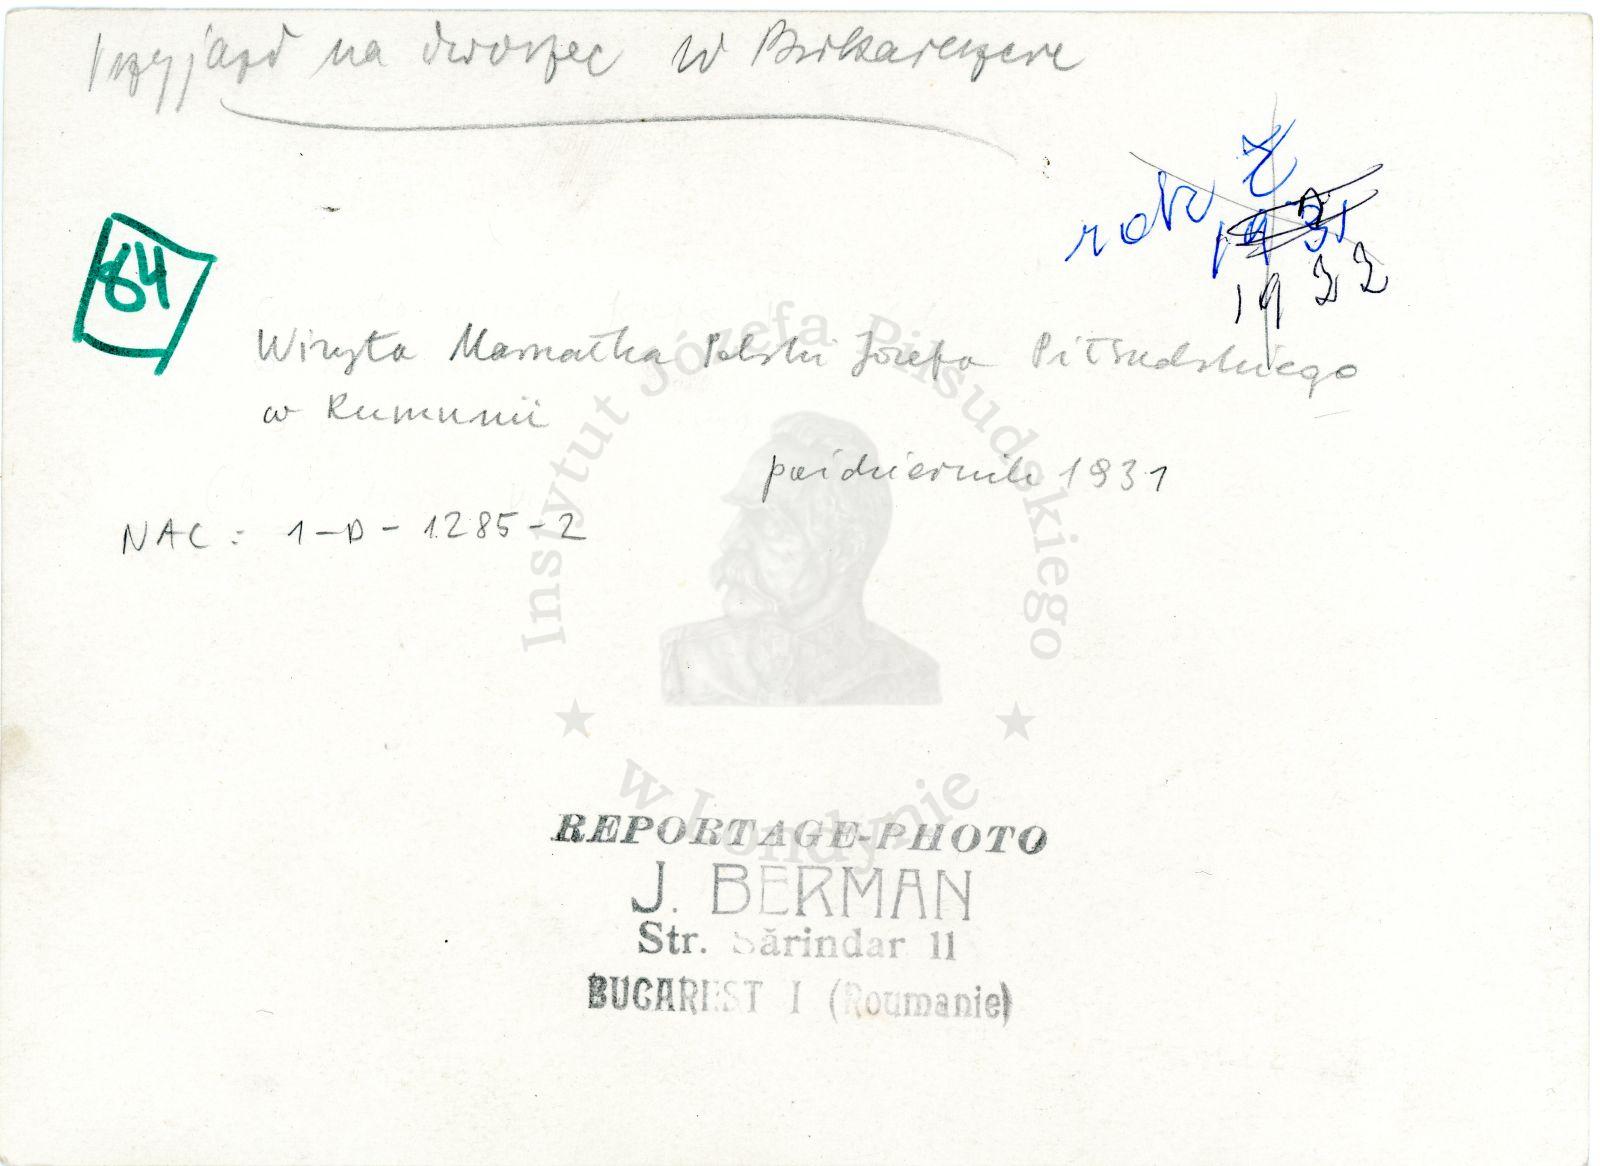 Przyjazd na dworzec w Bukareszcie
rok ?
1931
1932
84
Wizyta Marszałka Polski Józefa Piłsudskiego
w Rumunii
październik 1931
NAC: 1-D-1285-2
Instytut Józefa Piłsudskiego
w Londynie
REPORTAGE-PHOTO
J. BERMAN
Str. Sărindar 11
BUCAREST I (Roumanie)